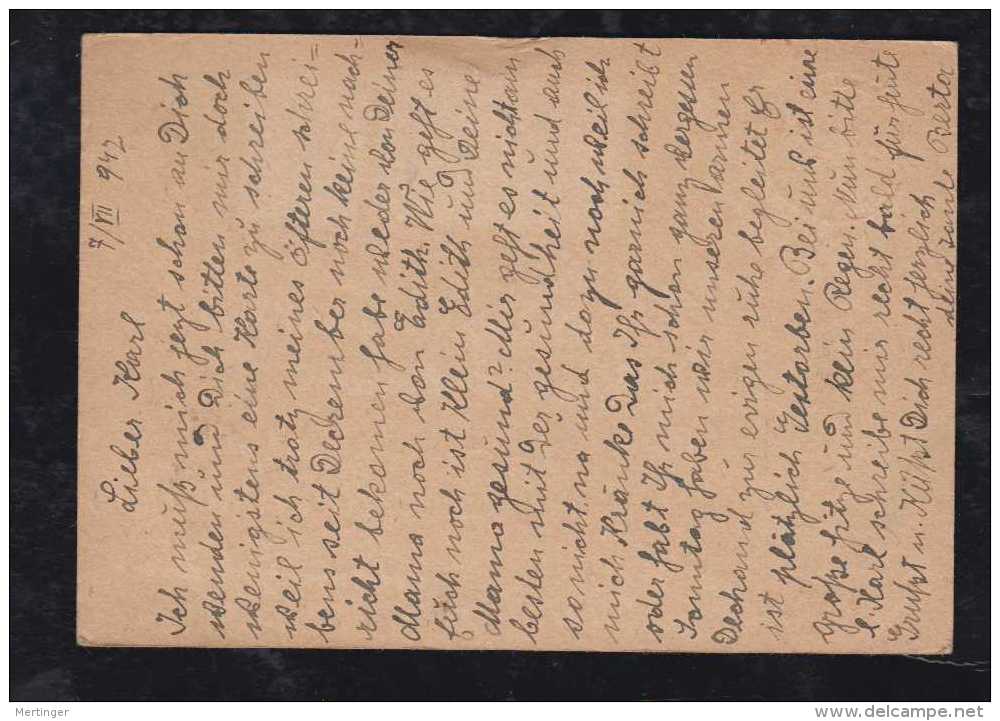 7/VII 942
Lieber Karl
Ich muß mich jezt schon an Dich
wenden und Dich bitten mir doch
wenigstens eine Karte zu schreiben
weil ich trotz meines öfteren schrei=
bens seit Dezember noch keine nach=
richt bekomen habe weder von Deiner
Mama noch von Edith. Wie geht es
Euch noch ist Klein Edith und Deine
Mama gesund? Mir geht es nicht am
besten mit der gesundheit und auch
so nicht na und dazu noch weil ich
mich Kränke das Ihr garnich schreibt
oder habt Ihr mich schon ganz vergessen
Sonntag haben wir unseren armen
Dechand zur evigen ruhe begleitet Er
ist plötzlich gestorben. Bei uns ist eine
große hitze und kein Regen. Nun bitte
l. Karl schreibe mir recht bald für heute
Grußt u. Küßt Dich recht herzlich
deine tante Berta
Mertinger
www.delcampe.net